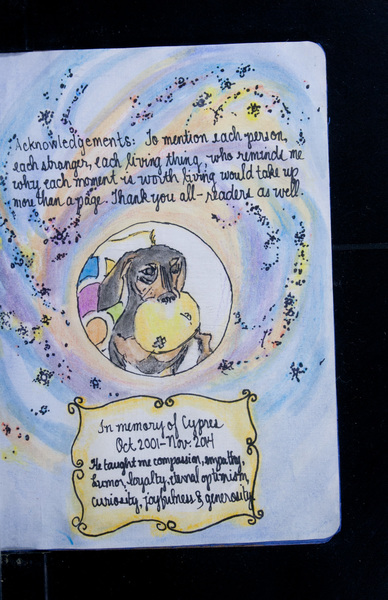 Acknowledgements: To mention each person,
each stranger, each living thing, who reminds me
why each moment is worth living would take up
more than a page. Thank you all - readers as well.
In memory of Cypres
Oct 2001 - Nov 2014
He taught me compassion, empathy,
humor, loyalty, eternal optimism,
curiosity, joyfulness & generosity